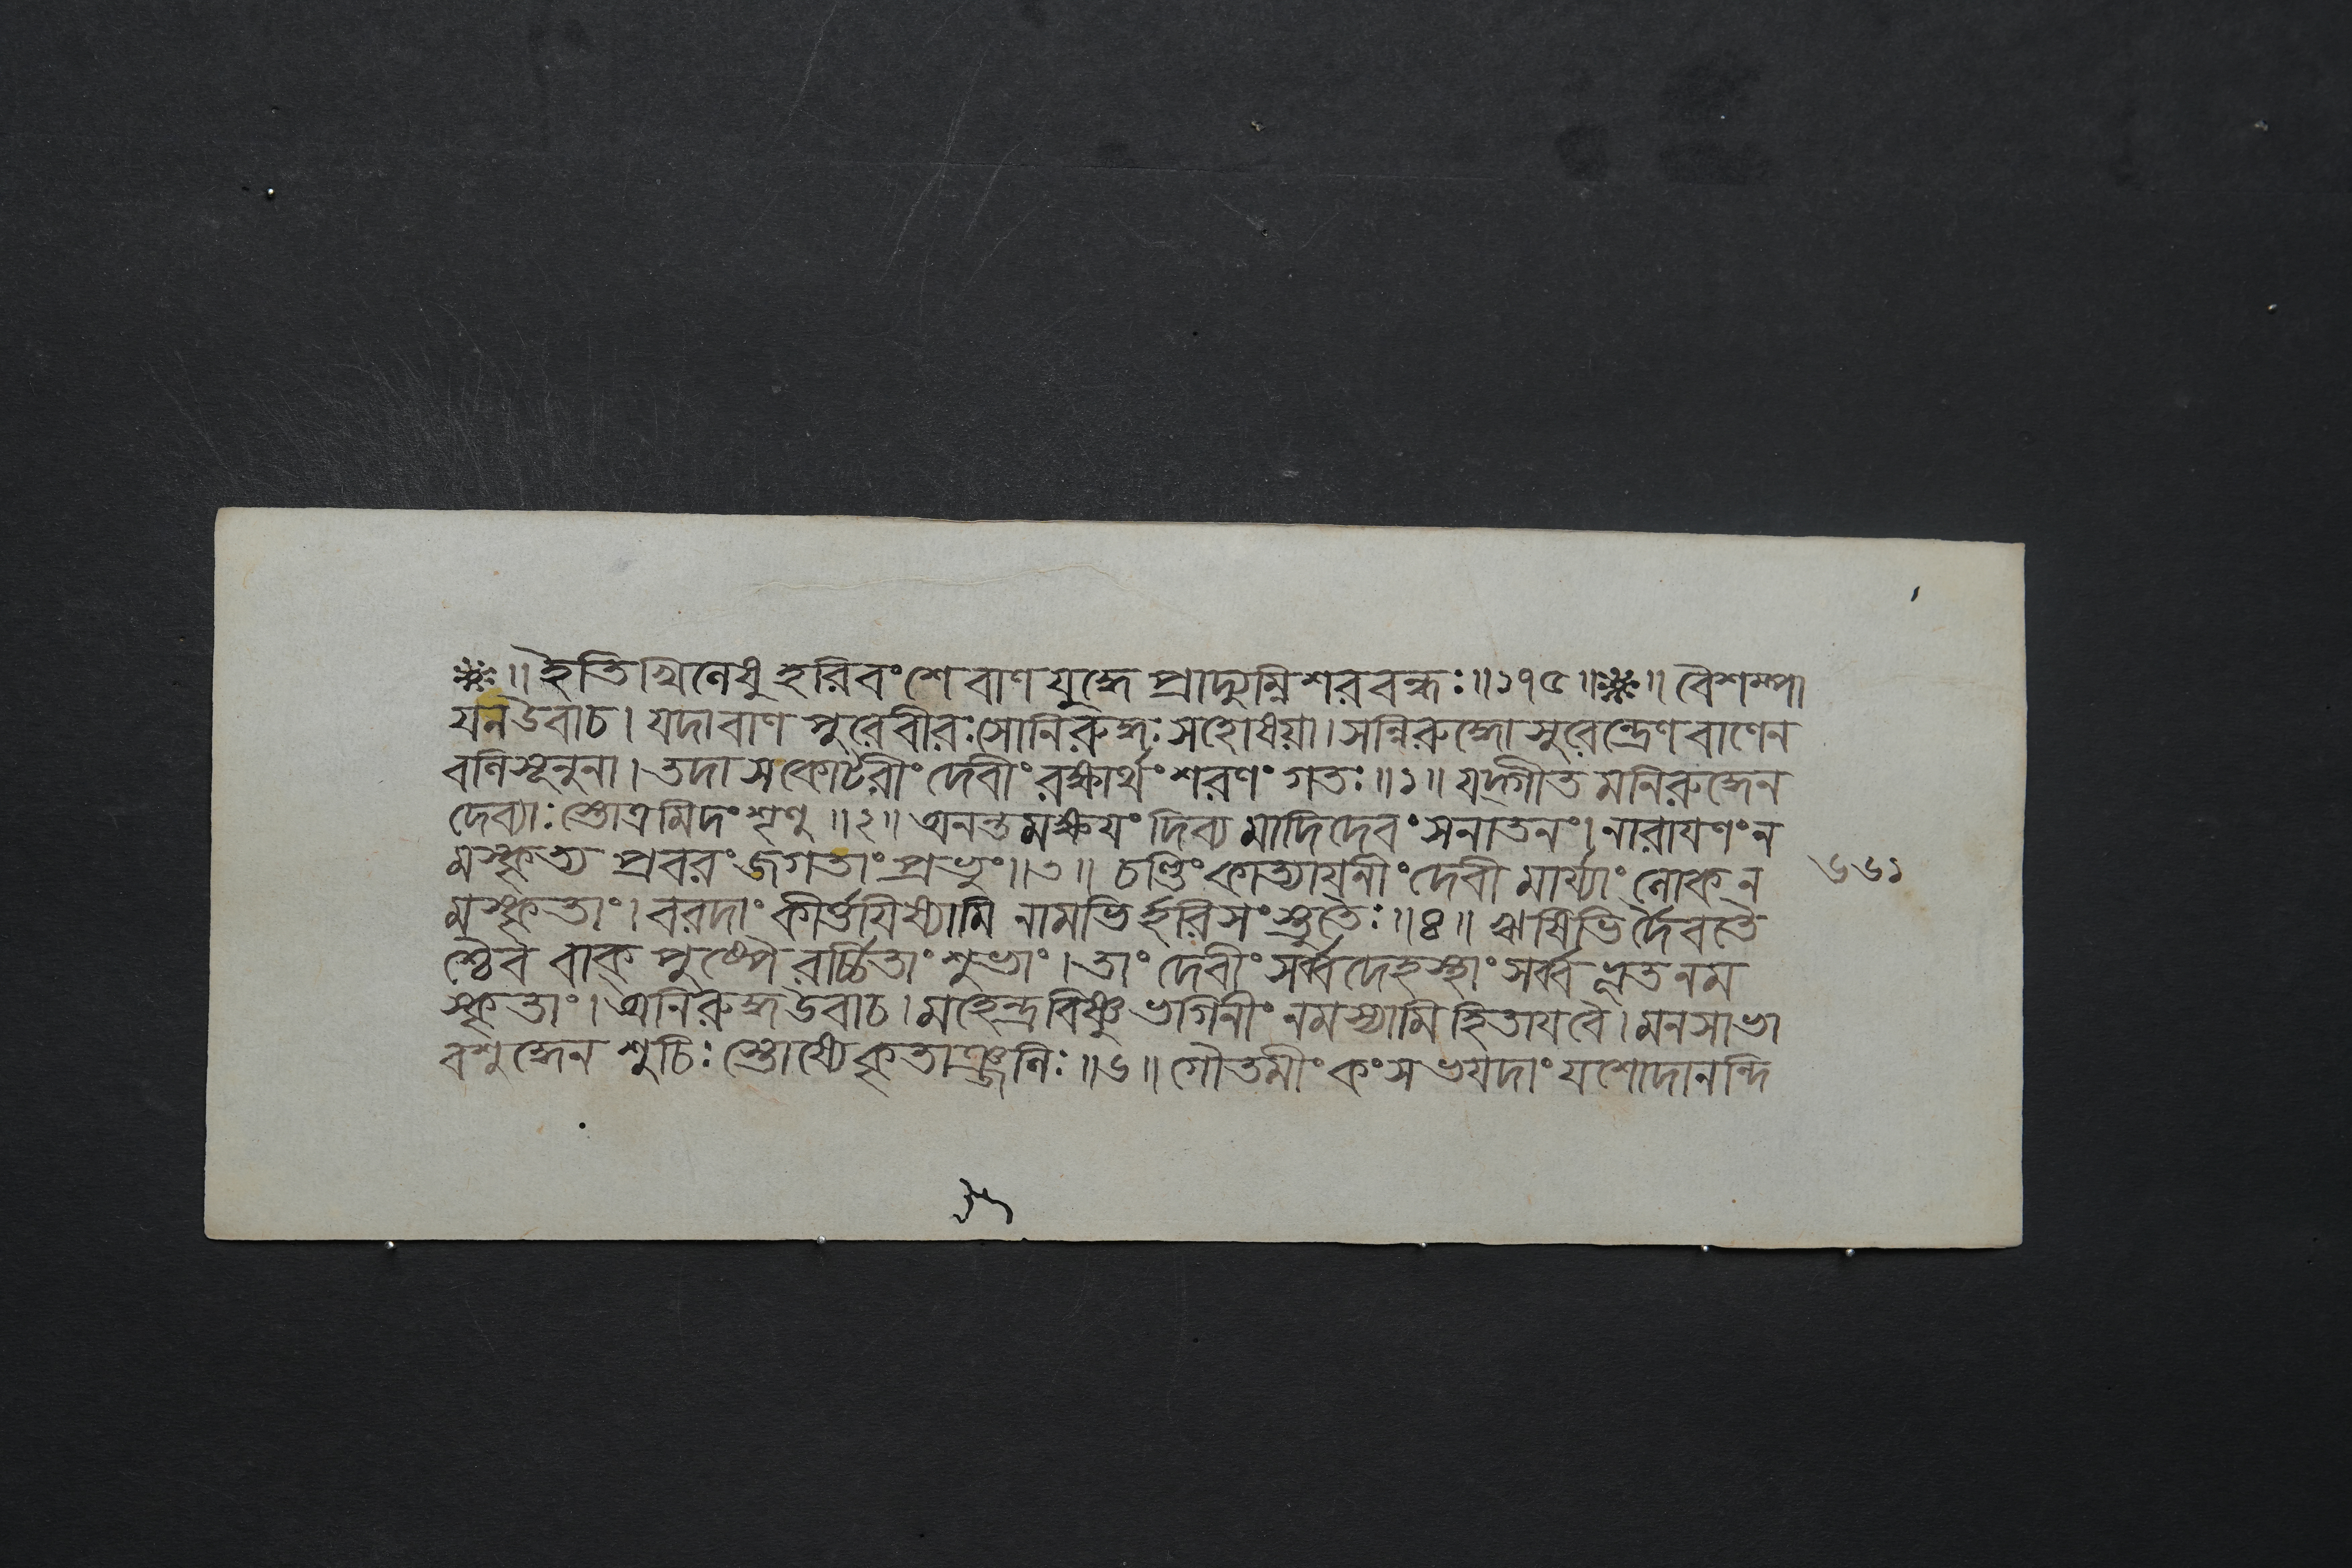 ॥ ইতি খিলেষু হরিবংশে বাণযুদ্ধে প্রাদ্যুম্নিশরবন্ধঃ ॥১৭৫॥ ॥ বৈশম্পা
যন উবাচ। যদা বাণপুরে বীরঃ সোনিরুদ্ধঃ সহোষয়া। সন্নিরুদ্ধোসুরেন্দ্রেণ বাণেন
বলিসূনুনা। তদা স কোটরীং দেবীং রক্ষার্থং শরণং গতঃ ॥১॥ যদ্গীতমনিরুদ্ধেন
দেব্যাঃ স্তোত্রমিদং শৃণু ॥২॥ অনন্তমক্ষযং দিব্যমাদিদেবং সনাতনং। নারাযণং ন
মস্কৃত্য প্রবরং জগতাং প্রভুং ॥৩॥ চণ্ডিং কাত্যাযনীং দেবীমার্য্যাং লোকন
মস্কৃতাং। বরদাং কীর্ত্তযিষ্যামি নামভির্হরিসংস্তুতৈঃ ॥৪॥ ঋষিভির্দৈবতৈ
শ্চৈব বাক্ পুষ্পৈরর্চ্চিতাং শুভাং। তাং দেবীং সর্ব্বদেহস্থাং সর্ব্বভূতনম
স্কৃতাং। অনিরুদ্ধ উবাচ। মহেন্দ্রবিষ্ণুভগিনীং নমস্যামি হিতাযবৈ। মনসা ভা
বশুদ্ধেন শুচিঃ স্তোষ্যে কৃতাঞ্জলিঃ ॥৬॥ গৌতমীং কংসভযদাং যশোদানন্দি
৬৬১